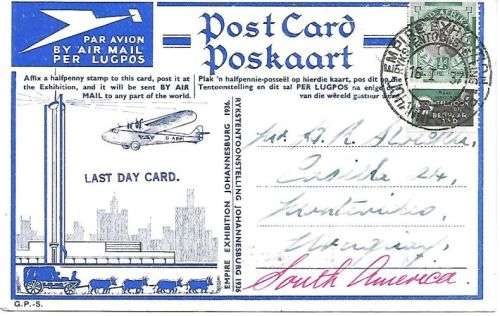 PAR AVION
BY AIR MAIL
PER LUGPOS
Post Card
Poskaart
Affix a halfpenny stamp to this card, post it at
the Exhibition, and it will be sent BY AIR
MAIL to any part of the world.
Plak 'n halfpennie-posseël op hierdie kaart, pos dit op die
Tentoonstelling en dit sal PER LUGPOS na enige
van die wêreld gestuur
LAST DAY CARD.
EMPIRE EXHIBITION JOHANNESBURG 1936.
RYKSTENTOONSTELLING JOHANNESBURG 1936
EMPIRE EXHIBITION
Casilla 24,
Montevideo
Uruguay
South America.
G.P.-S.